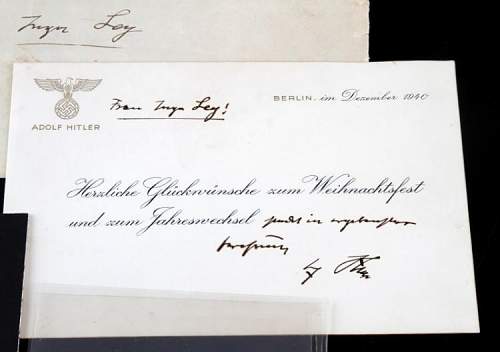 Inga Ley
ADOLF HITLER
Frau Inga Ley!
BERLIN, im Dezember 1940
Herzliche Glückwünsche zum Weihnachtsfest
und zum Jahreswechsel